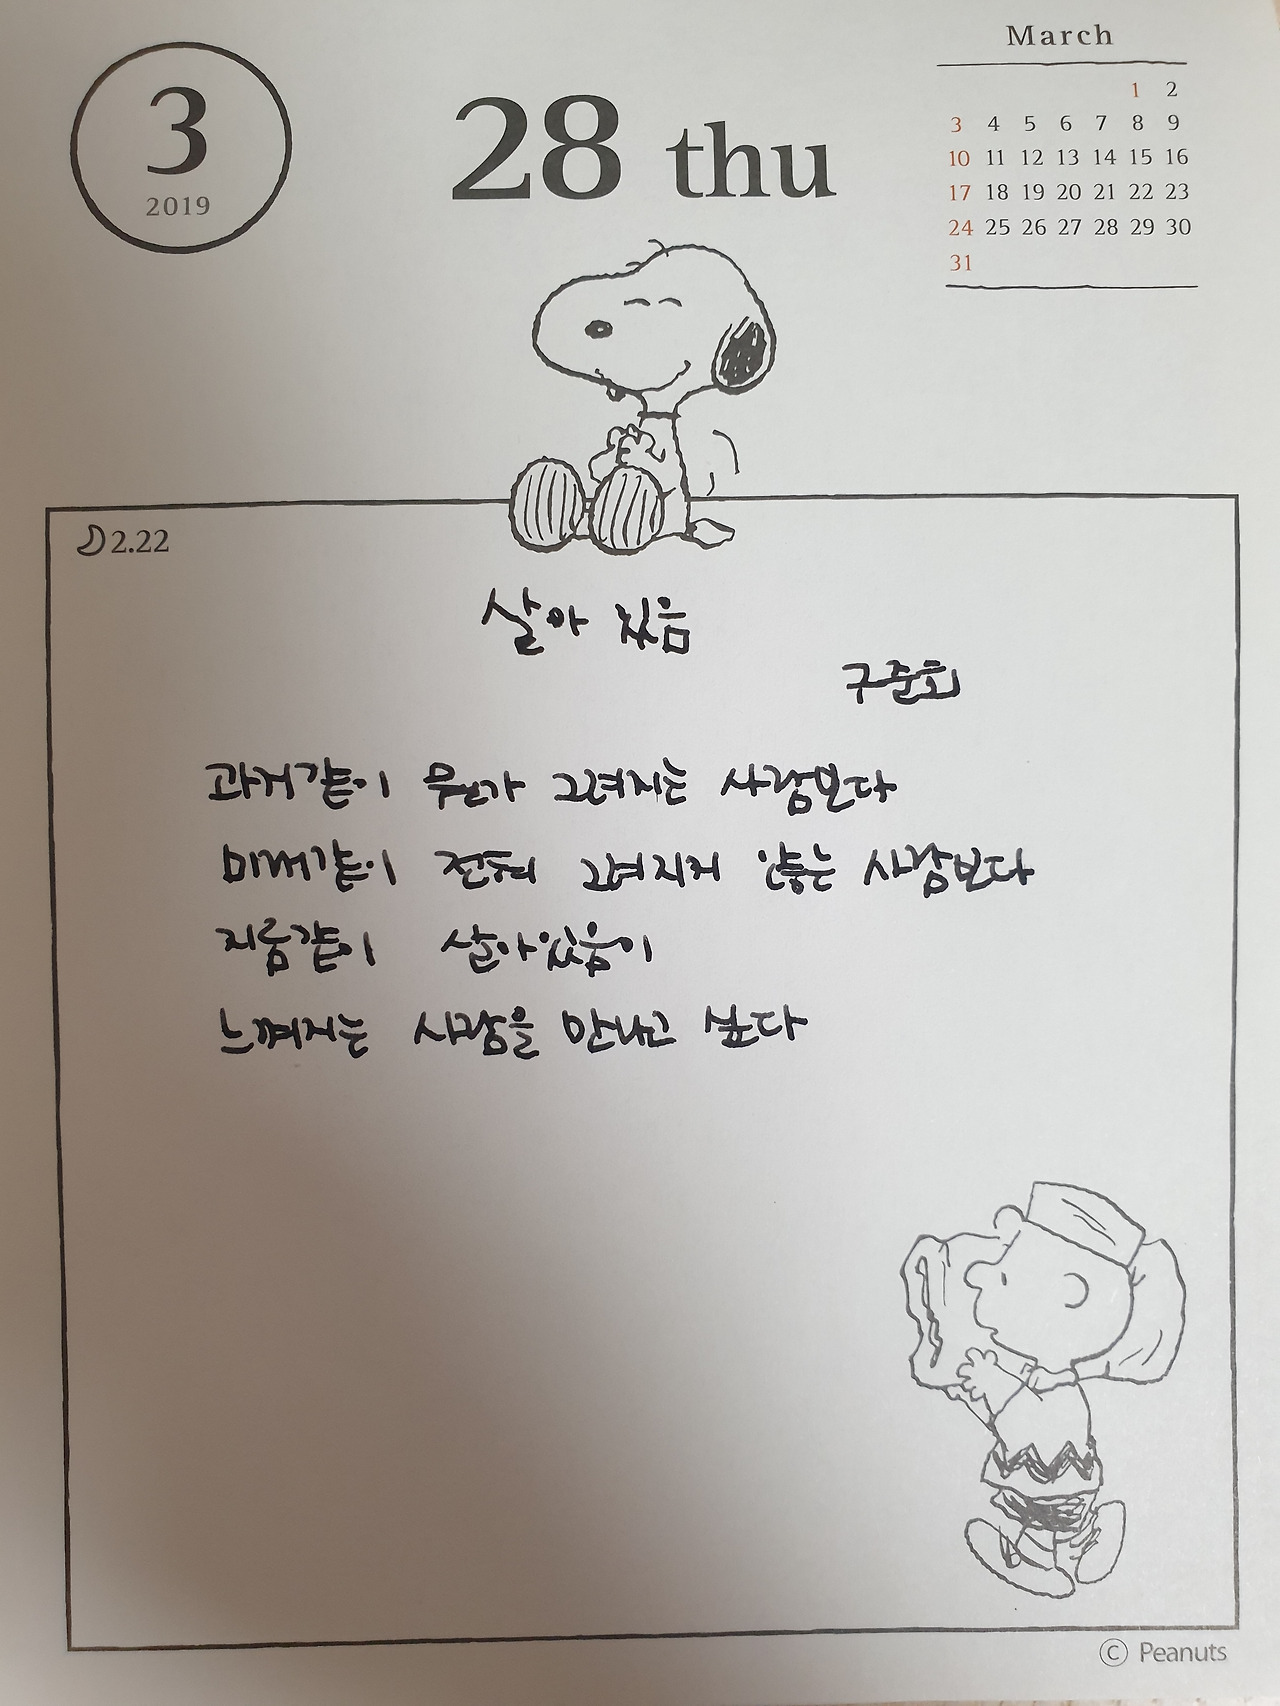 3
2019
28 thu
March
1 2
3 4 5 6 7 8 9
10 11 12 13 14 15 16
17 18 19 20 21 22 23
24 25 26 27 28 29 30
31
2.22
살아 있음
구준회
과거같이 뭔가 그려지는 사람보다
미래같이 전혀 그려지지 않는 사람보다
지금같이 살아있음이
느껴지는 사람을 만나고 싶다
© Peanuts